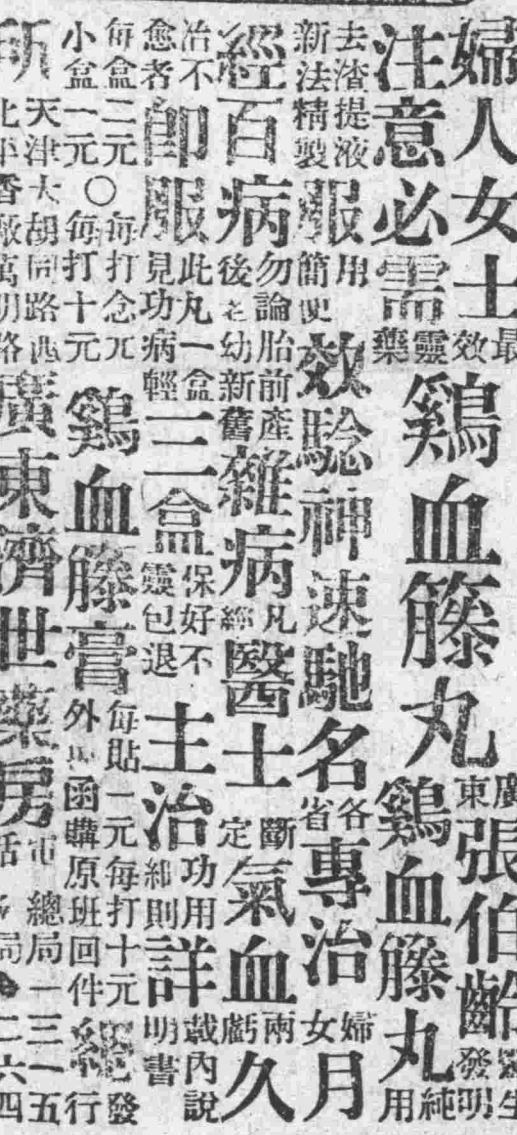 婦人女士
注意必需
最效靈藥
鷄血籐丸
廣東
張伯齡
醫生
發明
鷄血籐丸
純用
去渣提液
新法精製
服
用
簡便
效騐神速馳名
各省
專治
婦女
月
經百病
勿論胎前產
後老幼新舊
雜病
凡經
醫士
斷定
氣血
兩虧
久
治不
愈者
即服
此凡一盒
見功病輕
三盒
保好不
靈包退
主治
功用
細則
詳
載內說
明書
每盒二元
小盒一元
○
每打念元
每打十元
鷄血籐膏
每貼一元每打十元
外埠函購原班回件
經
發行
所
天津大胡同路西
北平香廠萬明路
廣東濟世藥房
電話
總局一三一五
局二六四